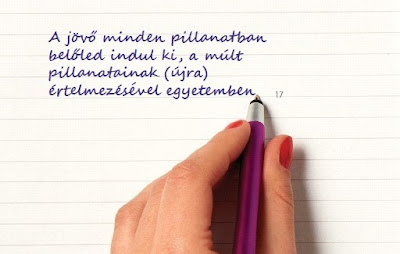 A jövő minden pillanatban
belőled indul ki, a múlt
pillanatainak (újra)
értelmezésével egyetemben
17